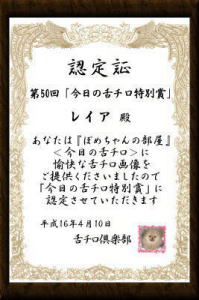 認定証
第50回「今日の舌チロ特別賞」
レイア 殿
あなたは『ぽめちゃんの部屋』
＜今日の舌チロ＞に
愉快な舌チロ画像を
ご提供くださいましたので
「今日の舌チロ特別賞」に
認定させていただきます
平成16年4月10日
舌チロ倶楽部